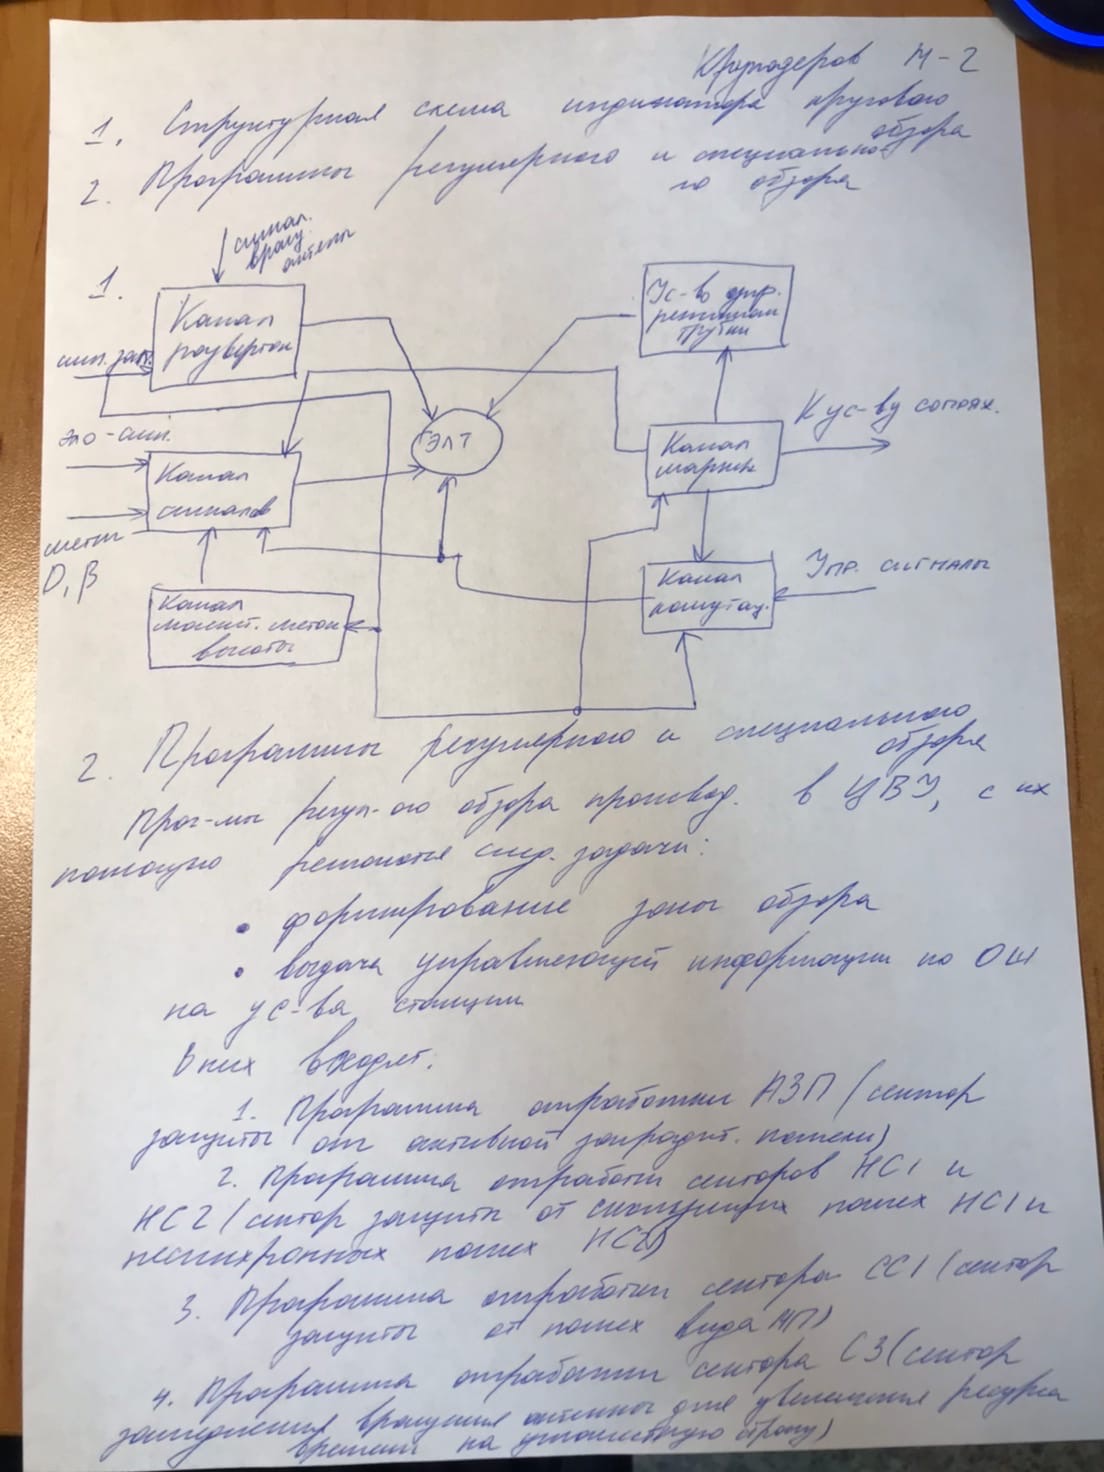 М-2
1. Структурная схема индикатора кругового
обзора
2. Программы регулярного и специально-
го обзора
1.
сигнал.
вращ.
антены
Канал
развертки
имп. зап.
Ус-во опр.
режимам
трубки
эхо-сиг.
ЭЛТ
Канал
сигналов
Канал
маркек
К ус-ву сопряж.
метки
D, β
Канал
масшт. меток
высоты
Канал
комутац.
Упр. сигналы
2. Программы регулярного и специального
обзора
Прог-мы регул-ого обзора производ. в ЦВУ, с их
помощью решаются след. задачи:
• формирование зоны обзора
• выдача управляющей информации по ОШ
на ус-ва станции
В них входят:
1. Программа отработки АЗП (сектор
защиты от активной заградит. помехи)
2. Программа отработки секторов НС1 и
НС2 (сектор защиты от скользящих помех НС1 и
несинхронных помех НС2)
3. Программа отработки сектора СС1 (сектор
защиты от помех вида МП)
4. Программа отработки сектора СЗ (сектор
замедления вращения антенны для увеличения ресурса
времени на